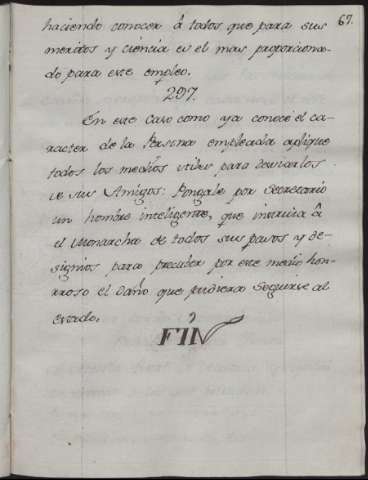 67.
haciendo conocer â todos que para sus
meritos y ciencia es el mas proporciona-
do para este empleo.
297.
En este caso como ya conoce el ca-
racter de la Persona empleada aplique
todos los medios utiles para desviarlos
de sus Amigos: Pongale por Secretario
un hombre inteligente, que instruia â
el Monarcha de todos sus pasos y de-
signios para precaber por este medio hon-
rroso el daño que pudiera seguirse al
estado.
FIN